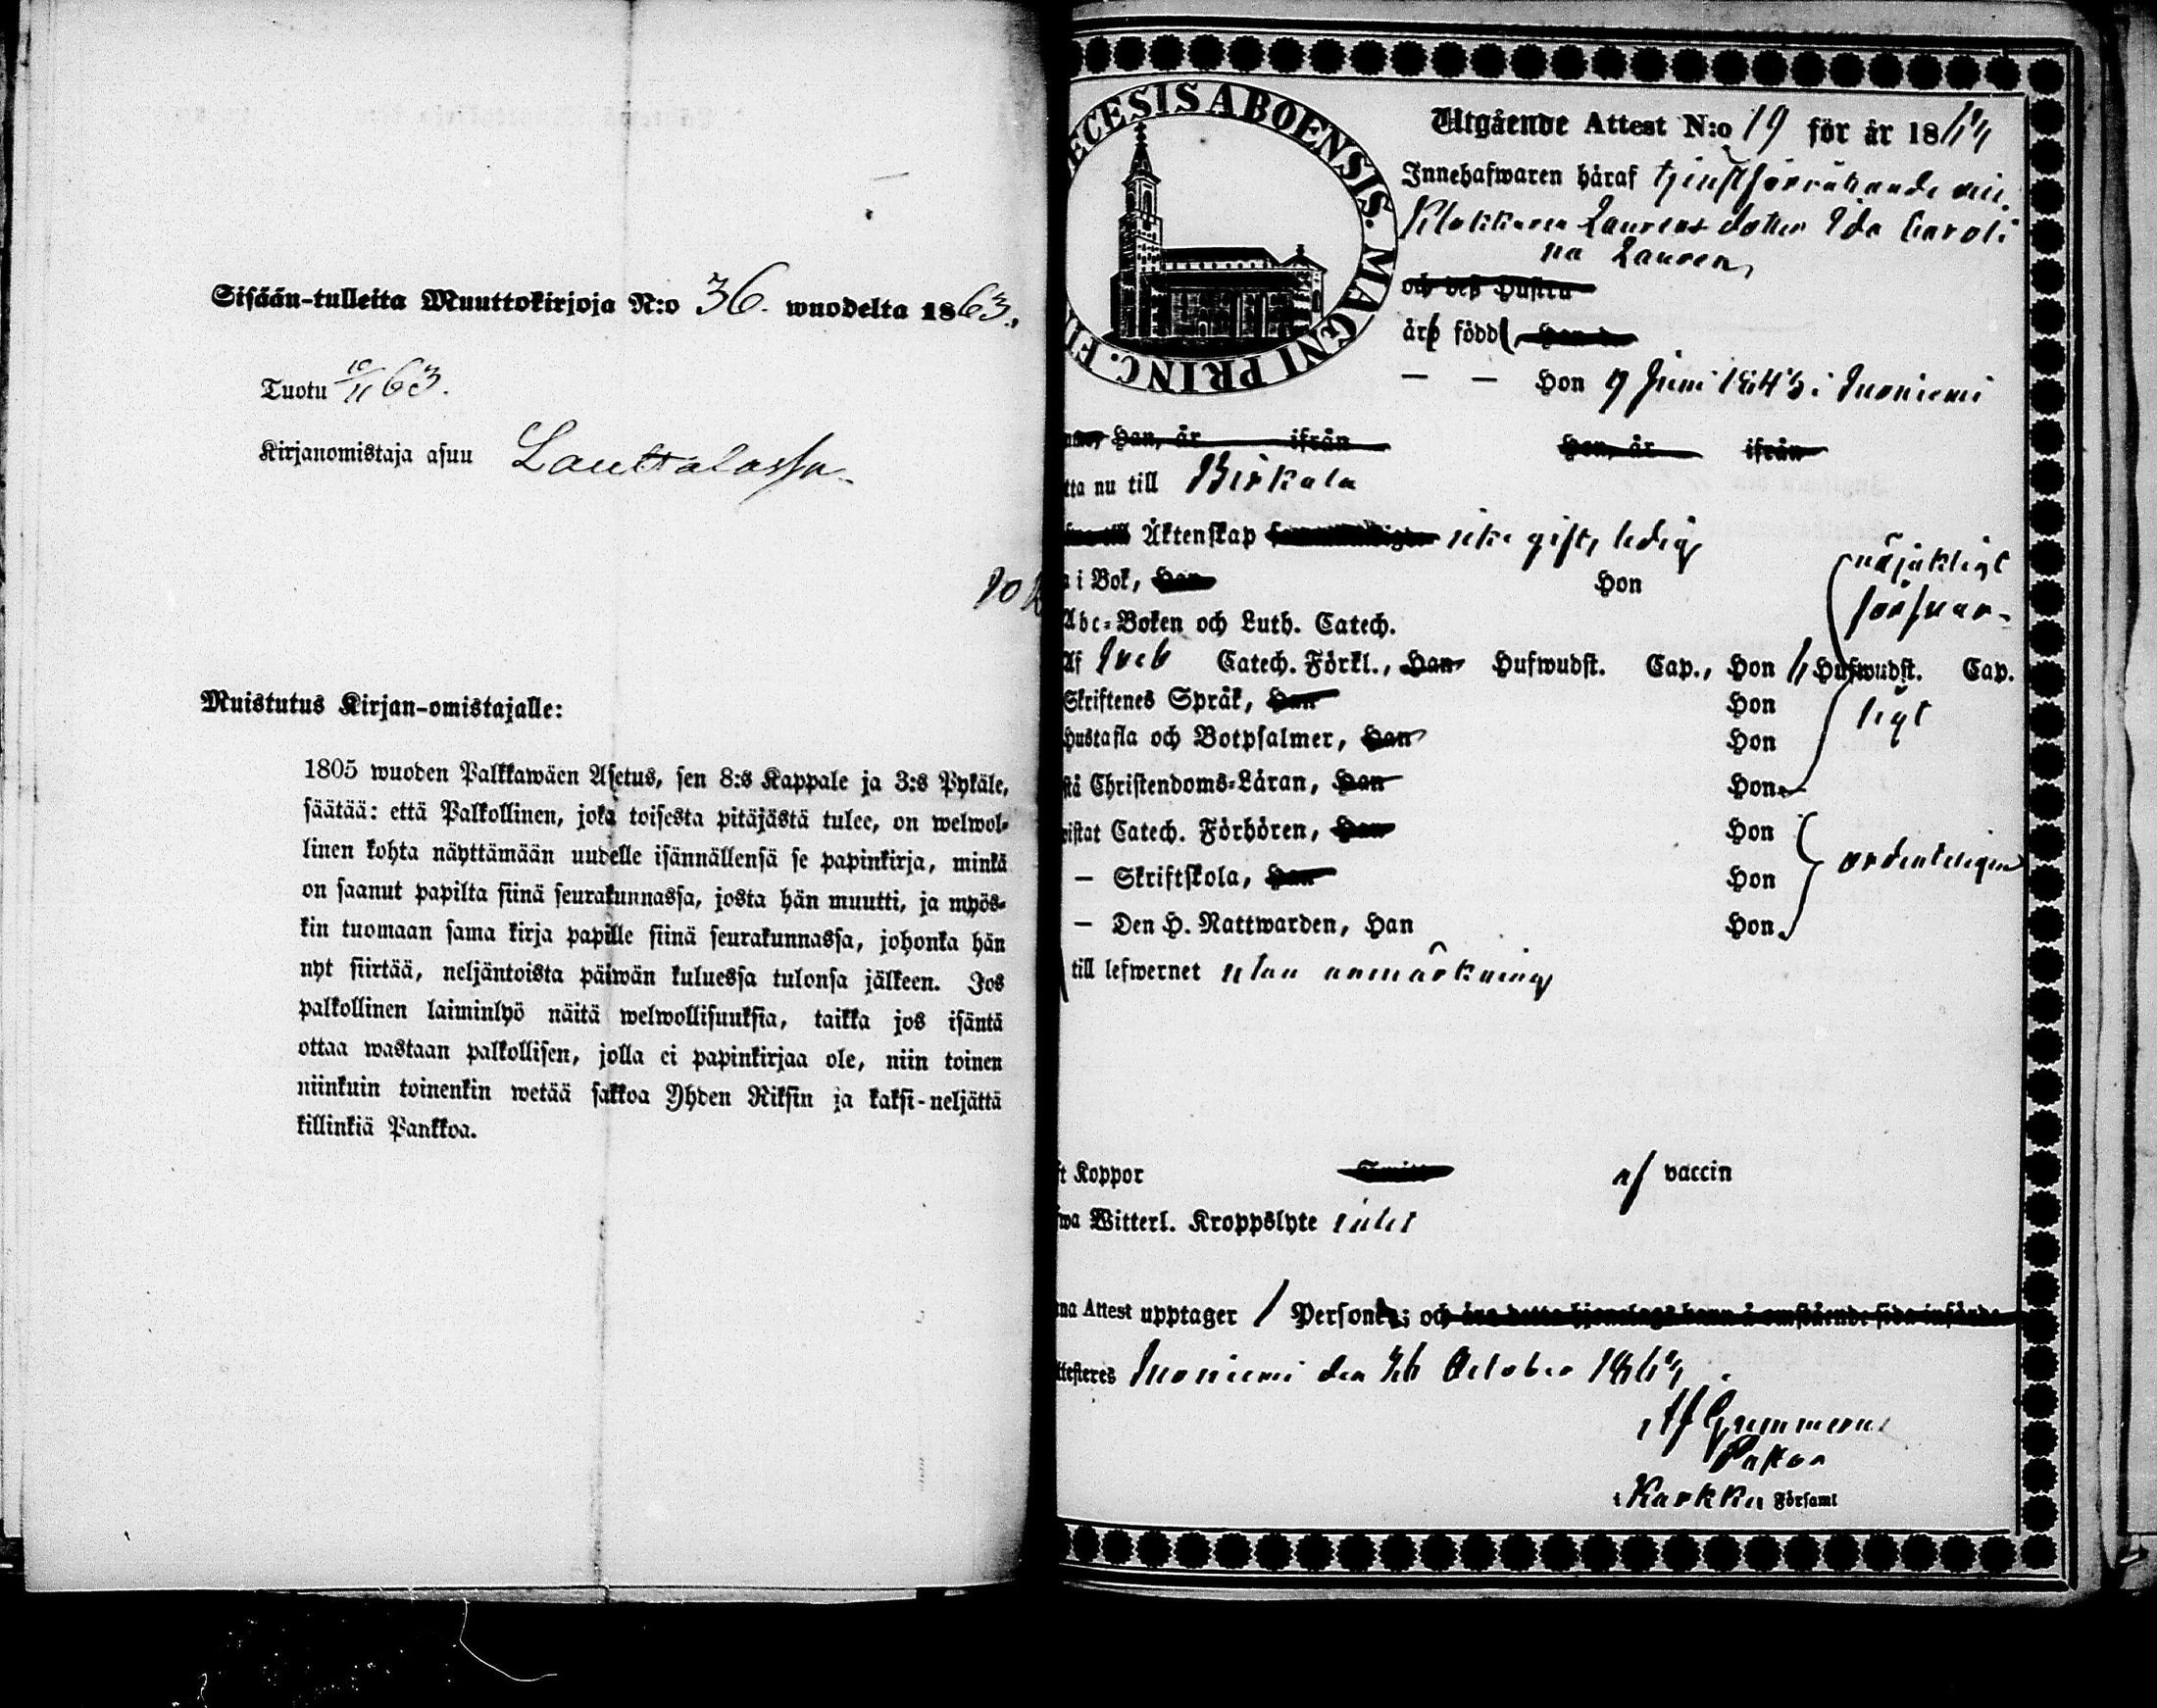 Sisään-tulleita Muuttokirjoja N:o 36. wuodelta 1863.
Tuotu 10/11 63.
Kirjanomistaja asuu Lauttalassa
Muistutus Kirjan-omistajalle:
1805 wuoden Palkkawäen Asetus, sen 8:s Kappale ja 3:s Pykäle,
säätää: että Palkollinen, joka toisesta pitäjästä tulee, on welwol-
linen kohta näyttämään uudelle isännällensä se papinkirja, minkä
on saanut papilta siinä seurakunnassa, josta hän muutti, ja myös-
kin tuomaan sama kirja papille siinä seurakunnassa, johonka hän
nyt siirtää, neljäntoista päiwän kuluessa tulonsa jälkeen. Jos
palkollinen laiminlyö näitä welwollisuuksia, taikka jos isäntä
ottaa wastaan palkollisen, jolla ei papinkirjaa ole, niin toinen
niinkuin toinenkin wetää sakkoa Yhden Riksin ja kaksi-neljättä
killinkiä Pankkoa.
ECESIS ABOENSIS. MAGNI PRINC. FI
Utgående Attest N:o 19 för år 18
Innehafwaren häraf tjenstsökande
Klockaren Laurens dotter Ida Caroli
na Lauren,
och deß Hustru
är född,
— — Hon 9 Juni 1843 i Suoniemi
Han, är ifrån Hon, är ifrån
tta nu till Birkala
Äktenskap icke gift, ledig
i Bok, Han Hon nöjaktigt
Abc-Boken och Luth. Catech. försvar-
Af Sveb Catech. Förkl., Han Hufwudst. Cap., Hon Hufwudst. Cap.
Skriftenes Språk, Han Hon ligt
Hustafla och Botpsalmer, Han Hon
stå Christendoms-Läran, Han Hon
wistat Catech. Förhören, Han Hon
— Skriftskola, Han Hon ordenteligen
— Den H. Nattwarden, Han Hon
till lefwernet utan anmärkning
ft Koppor af vaccin
fwa Witterl. Kroppslyte intet
na Attest upptager 1 Person; och äro detta hjonelags barn å omstående sida införde
ttesteres Suoniemi den 26 October 1863
Af Gummerus
Pastor
i Karkku Församl